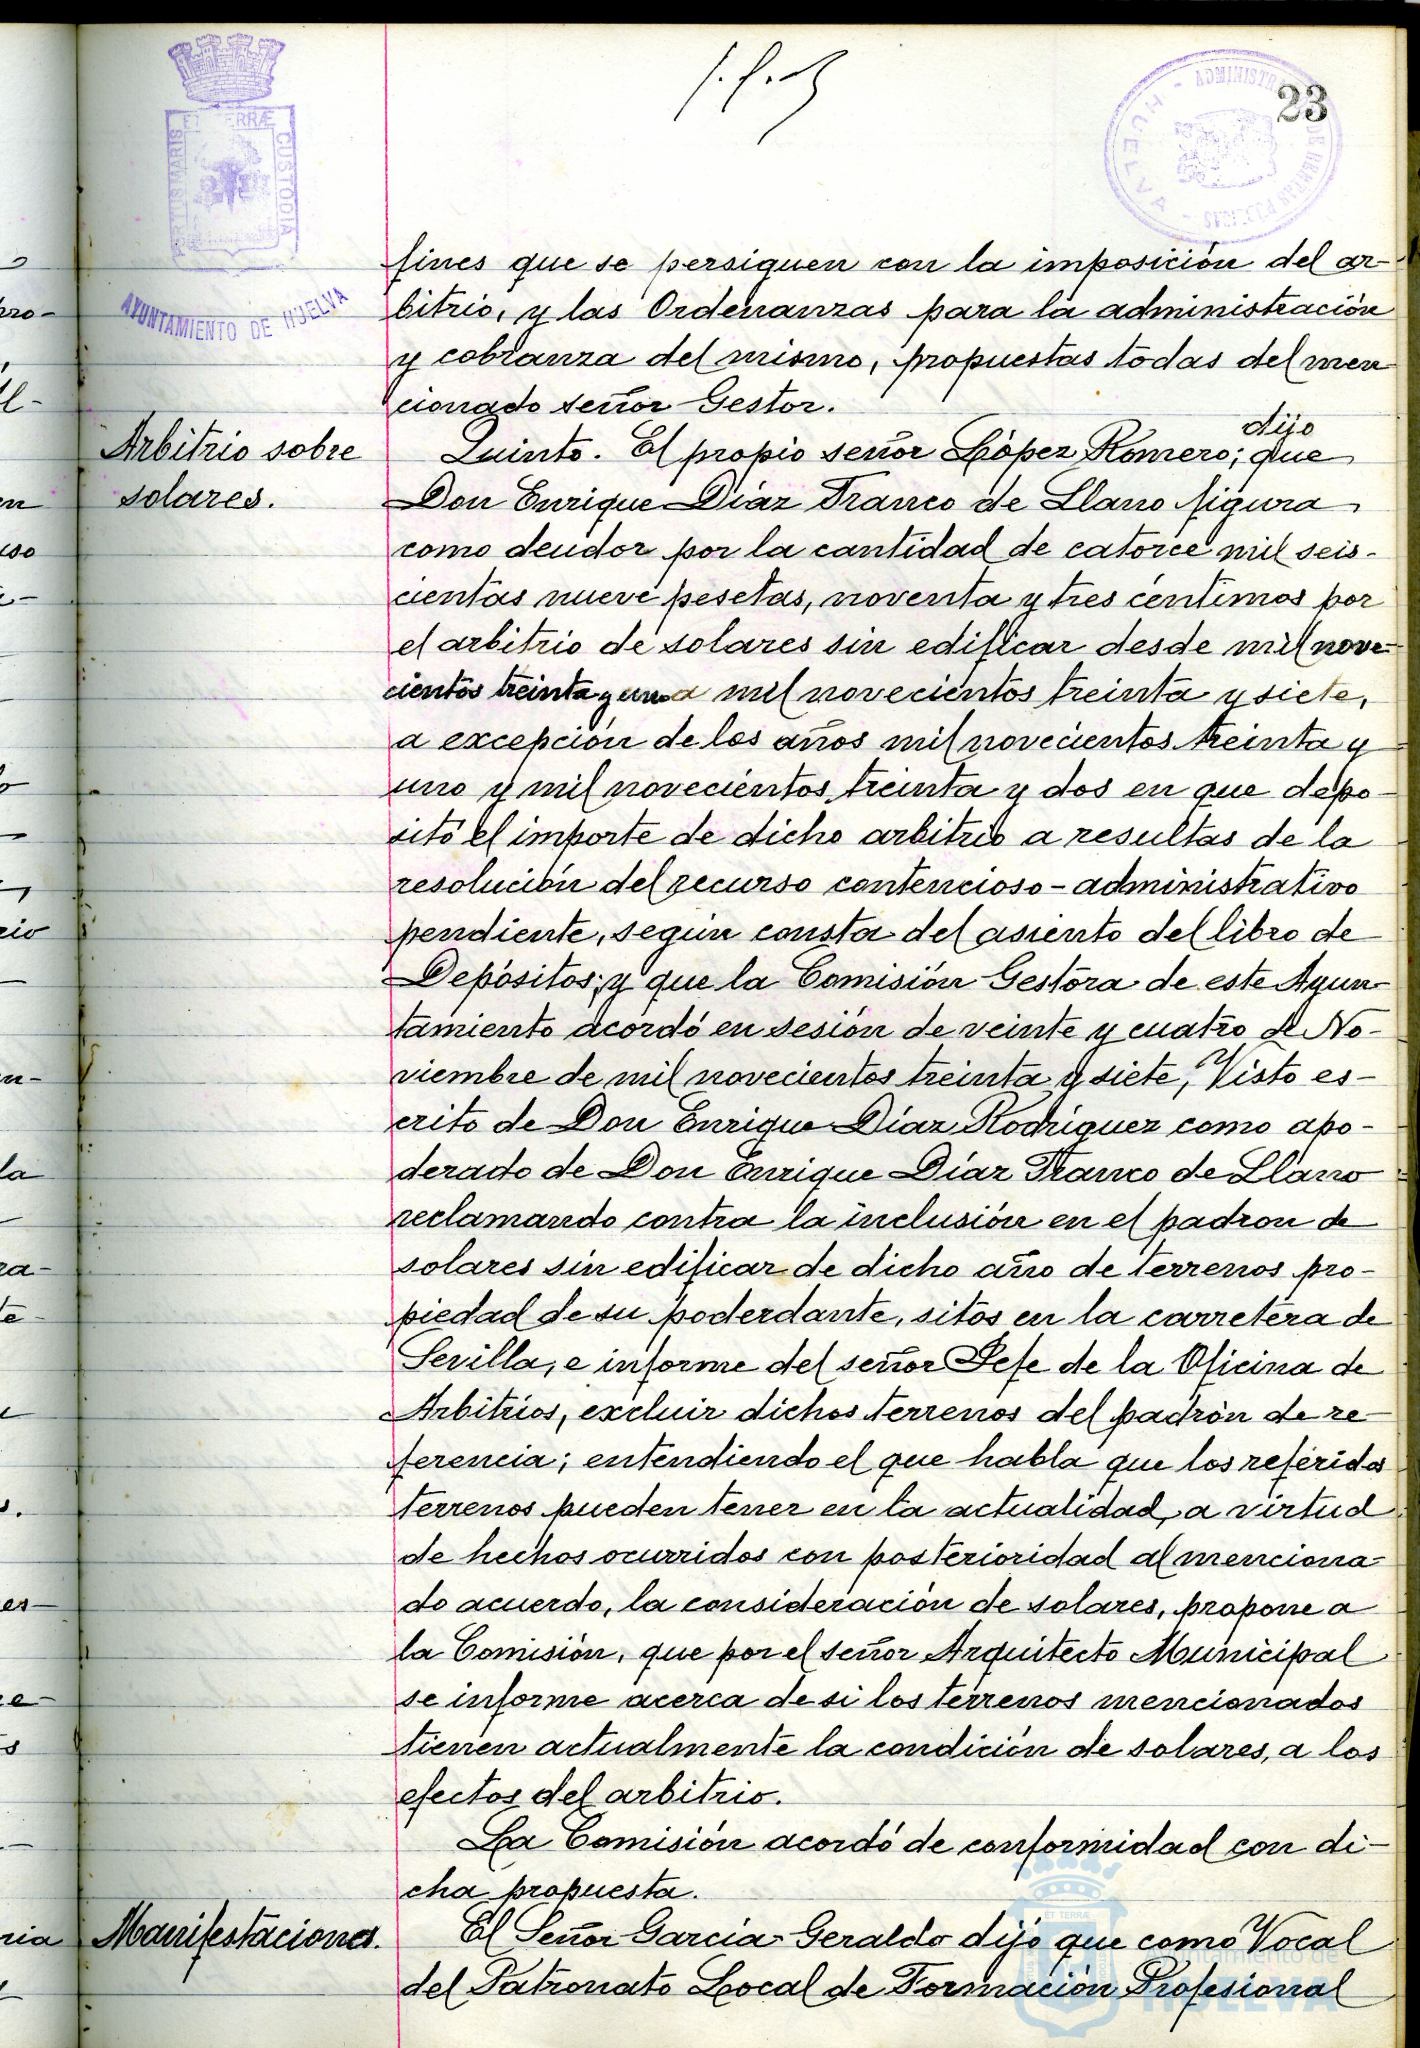 23
ADMINISTRA
DE RENTAS PUBLICAS
HUELVA
ET TERRÆ
PORTUS MARIS
CUSTODIA
AYUNTAMIENTO DE HUELVA
fines que se persiguen con la imposición del ar-
bitrio, y las Ordenanzas para la administración
y cobranza del mismo, propuestas todas del men
cionado señor Gestor.
Arbitrio sobre
solares.
dijo
Quinto. El propio señor López Romero; que
Don Enrique Díaz Franco de Llano figura
como deudor por la cantidad de catorce mil seis-
cientas nueve pesetas, noventa y tres céntimos por
el arbitrio de solares sin edificar desde mil nove-
cientos treinta y uno a mil novecientos treinta y siete,
a excepción de los años mil novecientos treinta y
uno y mil novecientos treinta y dos en que depo-
sitó el importe de dicho arbitrio a resultas de la
resolución del recurso contencioso-administrativo
pendiente, según consta del asiento del libro de
Depósitos; y que la Comisión Gestora de este Ayun-
tamiento acordó en sesión de veinte y cuatro de No-
viembre de mil novecientos treinta y siete, Visto es-
crito de Don Enrique Díaz Rodríguez como apo-
derado de Don Enrique Díaz Franco de Llano
reclamando contra la inclusión en el padron de
solares sin edificar de dicho año de terrenos pro-
piedad de su poderdante, sitos en la carretera de
Sevilla, e informe del señor Jefe de la Oficina de
Arbitrios, excluir dichos terrenos del padrón de re-
ferencia; entendiendo el que habla que los referidos
terrenos pueden tener en la actualidad, a virtud
de hechos ocurridos con posterioridad al menciona-
do acuerdo, la consideración de solares, propone a
la Comisión, que por el señor Arquitecto Municipal
se informe acerca de si los terrenos mencionados
tienen actualmente la condición de solares, a los
efectos del arbitrio.
La Comisión acordó de conformidad con di-
cha propuesta.
Manifestaciones.
El Señor García Geraldo dijo que como Vocal
del Patronato Local de Formación Profesional
Ayuntamiento de
HUELVA